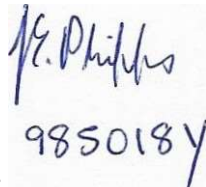 J.E. Phipps
985018Y